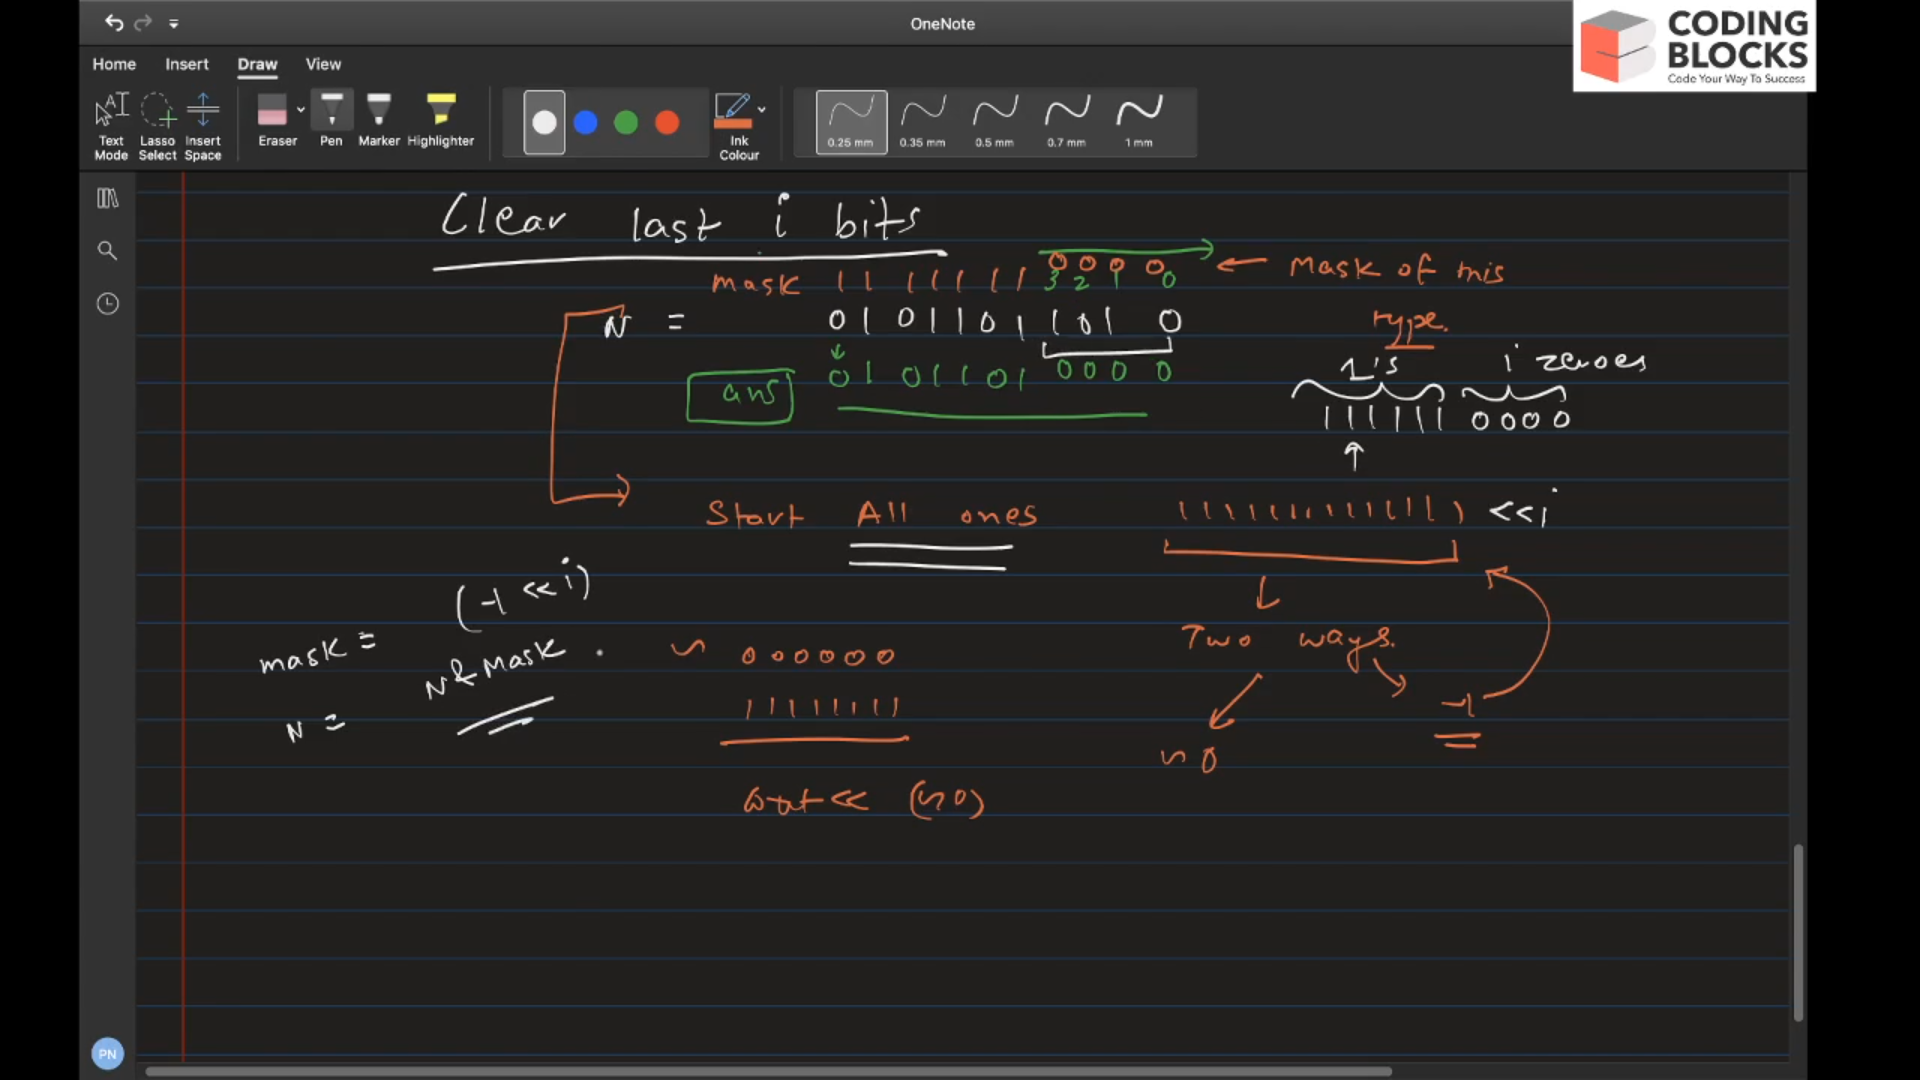 OneNote
CODING
BLOCKS
Code Your Way To Success
Home Insert Draw View
Text Mode
Lasso Select
Insert Space
Eraser
Pen
Marker
Highlighter
Ink Colour
0.25 mm
0.35 mm
0.5 mm
0.7 mm
1 mm
Clear last i bits
mask 1 1 1 1 1 1 1 1 0 0 0 0 ← Mask of this
3 2 1 0
N = 0 1 0 1 1 0 1 1 0 1 0 type.
ans 0 1 0 1 1 0 1 0 0 0 0
1's i zeroes
1 1 1 1 1 1 0 0 0 0
Start All ones 1 1 1 1 1 1 1 1 1 1 1 1 1 <<i
mask = (-1 <<i)
N = N & Mask
~ 0 0 0 0 0 0
1 1 1 1 1 1 1 1
Two ways.
~0
-1
cout << (~0)
PN